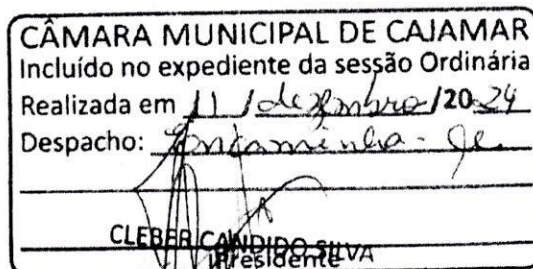 CÂMARA MUNICIPAL DE CAJAMAR
Incluído no expediente da sessão Ordinária
Realizada em 11 / dezembro /20 24
Despacho: Encaminha-se.
CLEBER CANDIDO SILVA
Presidente